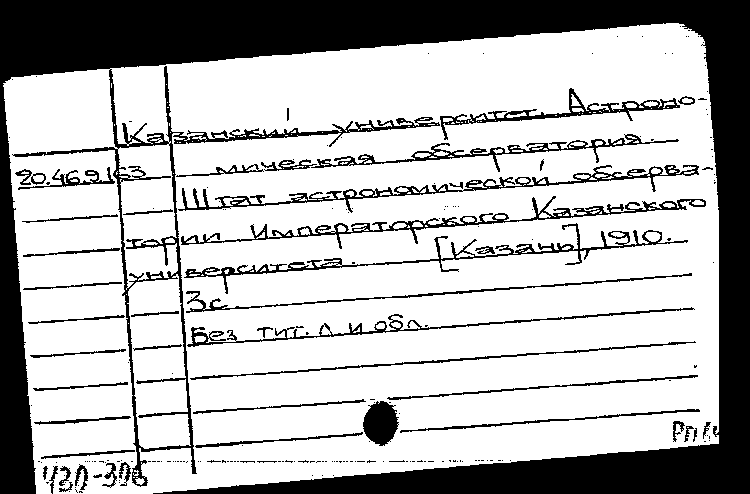 Казанский университет. Астроно-
20.46.9.163 мическая обсерватория.
Штат астрономической обсерва-
тории Императорского Казанского
университета. [Казань], 1910.
3с.
Без тит. л. и обл.
Ч30-306